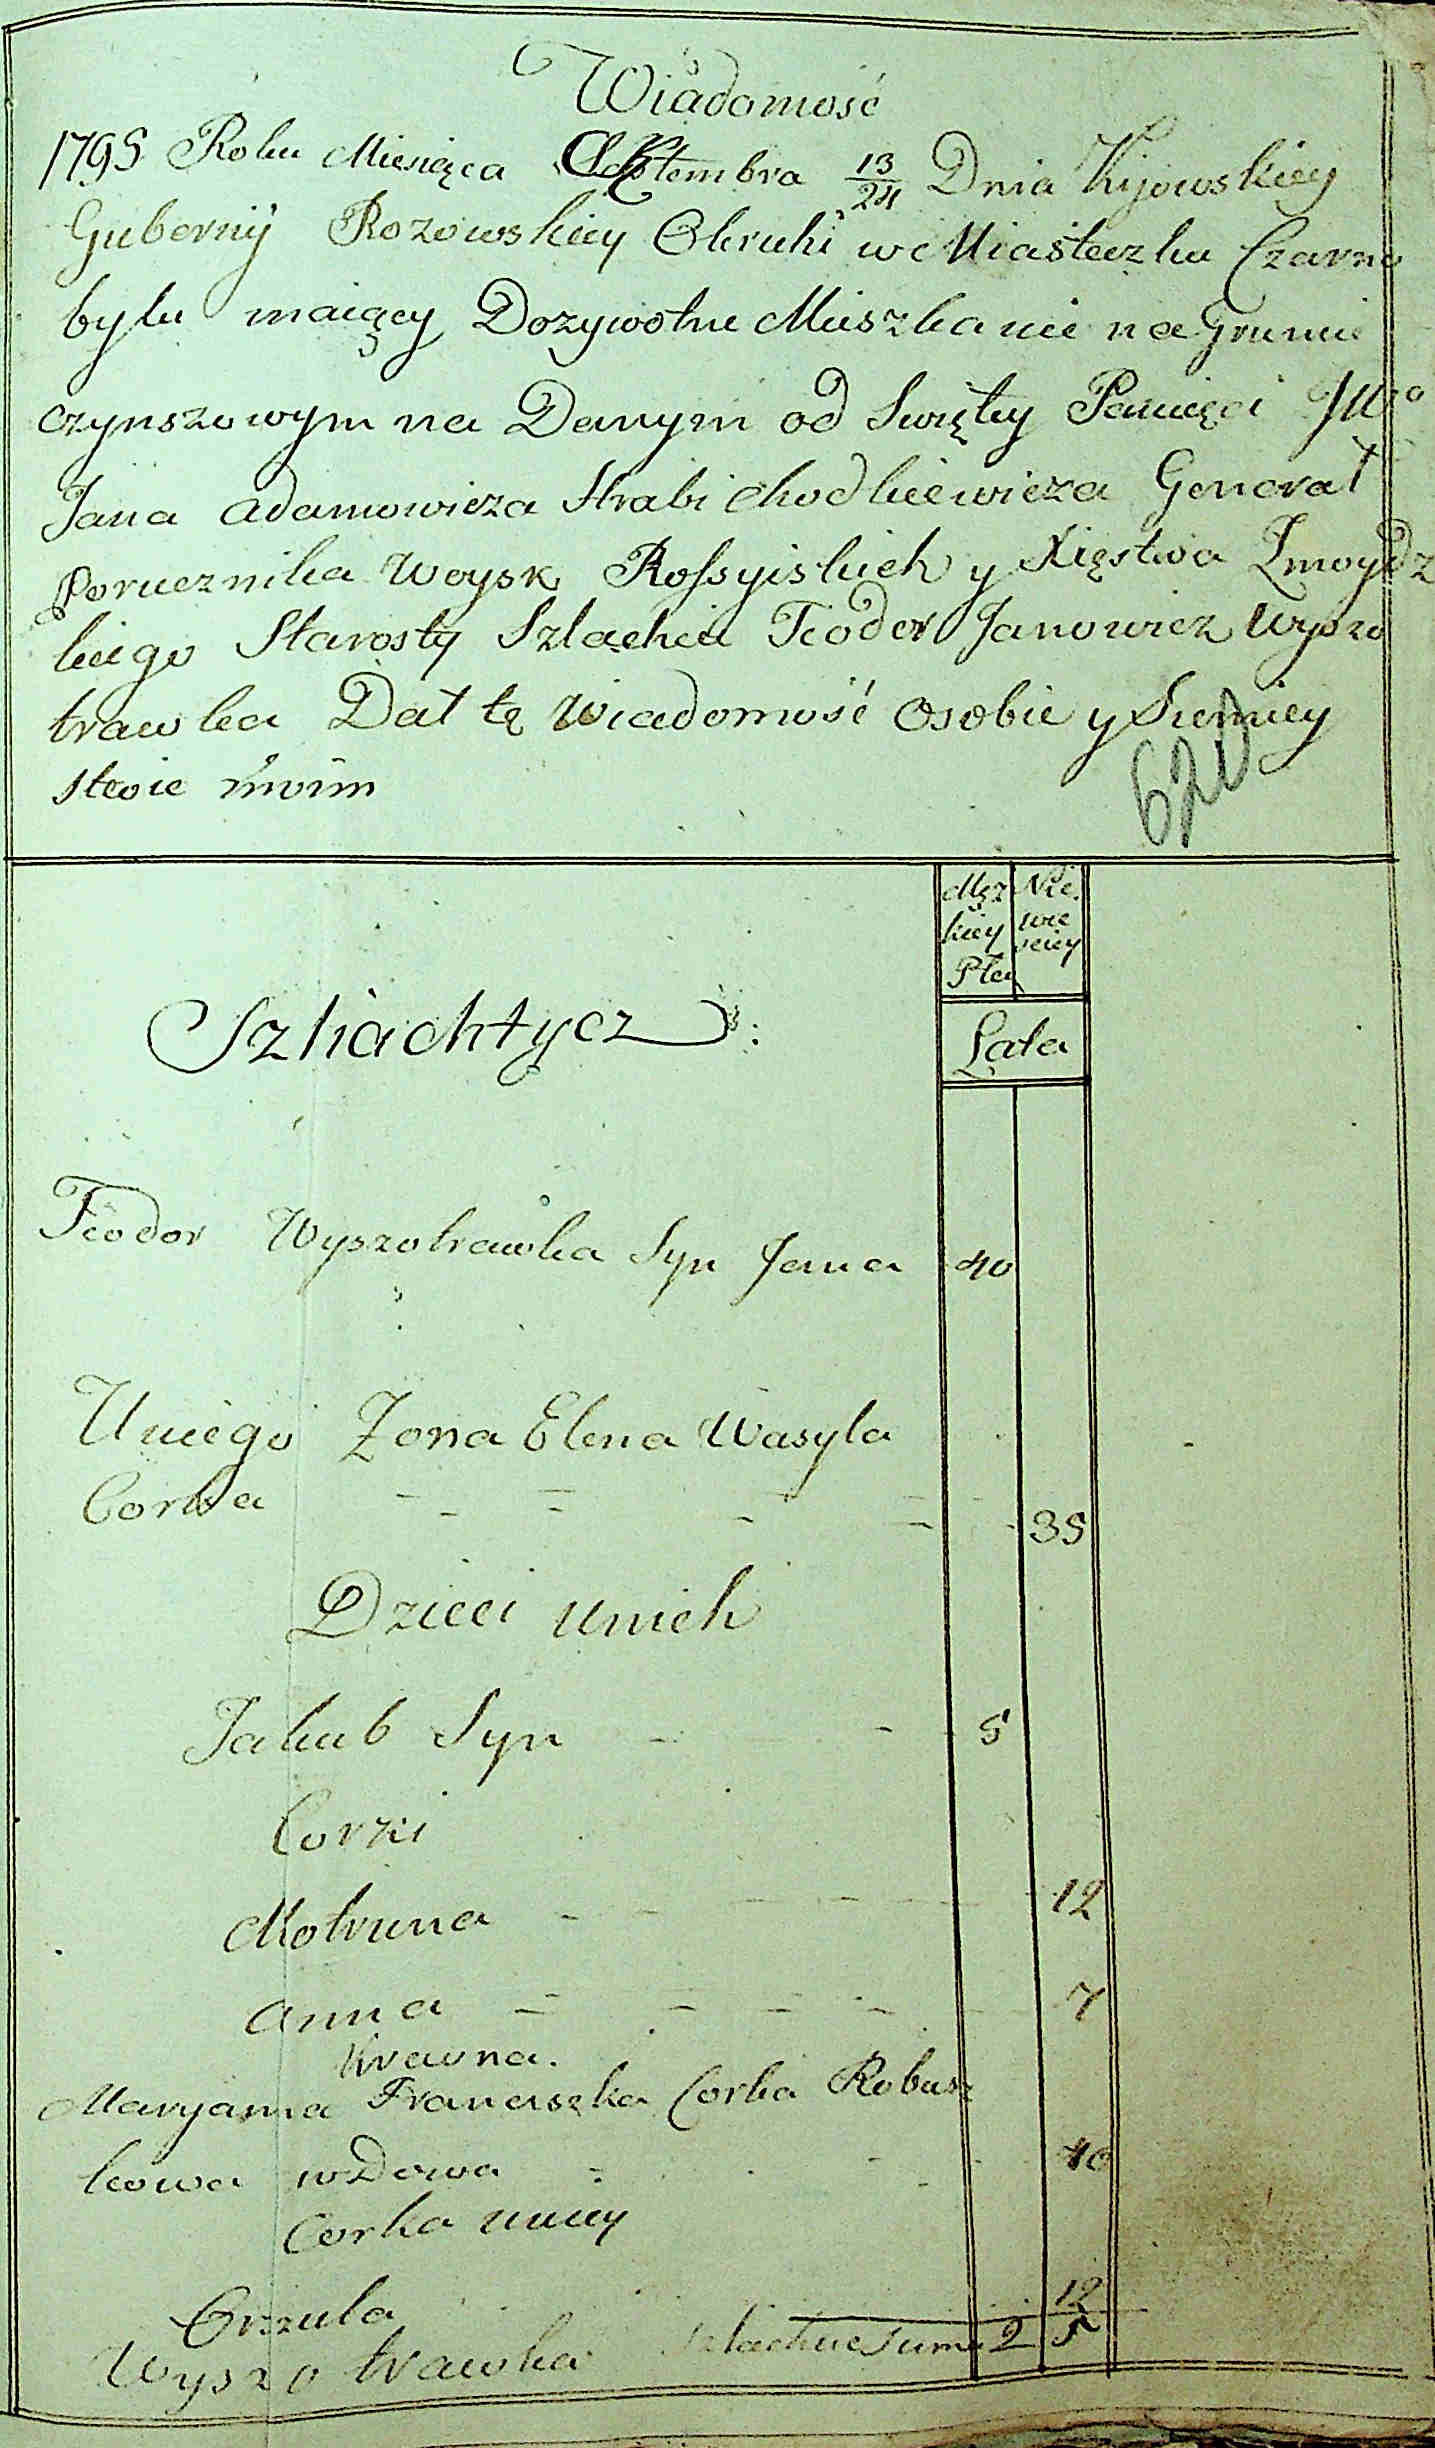 Wiadomość
1795 Roku Miesiąca Septembra 13/24 Dnia Kijowskiey
Gubernÿ Rozowskiey Okruhi w Miasteczku Czarno
bylu maiący Dozywotne Mieszkanie na Gruncie
czynszowym na Danym od Swiętey Pamięci JW°
Jana Adamowicza Hrabi Chodkiewicza Generał
Porucznika Woysk Rossyiskich y Xięstwa Zmoydz
kiego Starosty Szlachcic Teodor Janowicz Wyszo
trawka Dał tę Wiadomość o sobie y Siemiey
stwie moim
620
Męz Nie
kiey wie
sciey
Płci
Szliachtycz:
Lata
Teodor Wyszotrawka Syn Jana 40
U niego Zona Elena Wasyla
Corka 35
Dzieci u nich
Jakub Syn 5
Corki
Motruna 12
Anna 7
Krewna.
Maryanna Franciszka Corka Robusz
kowa wdowa 40
Corka u niey
Orszula 12
Wyszotrawka szlachcic Suma 2 5